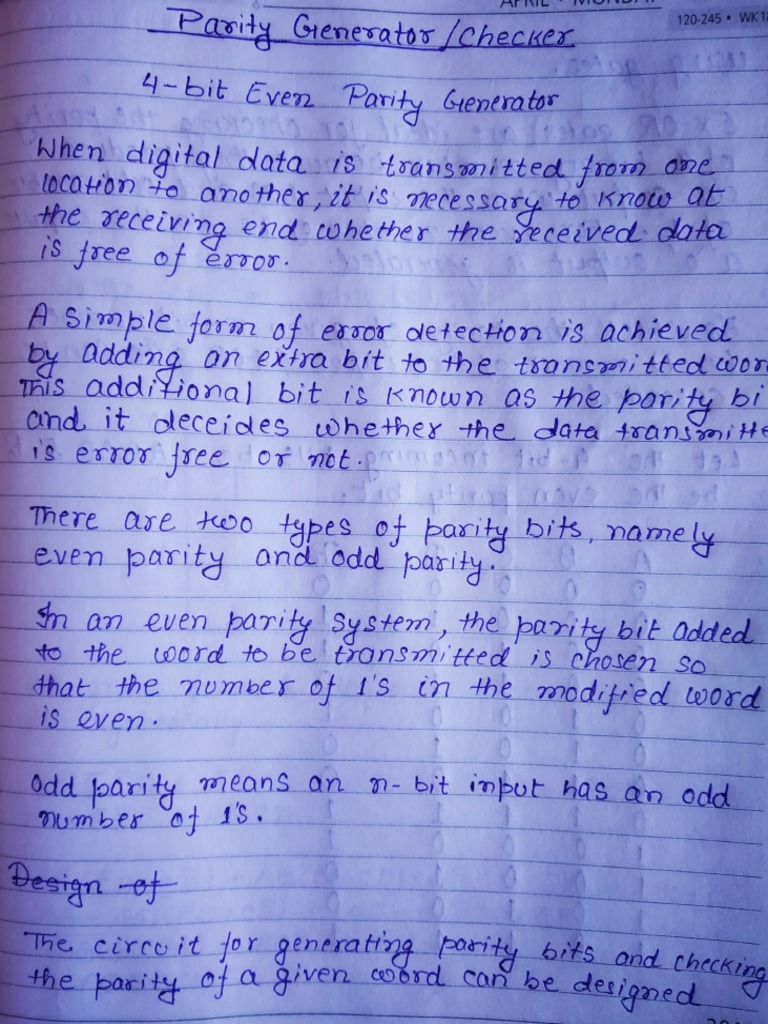 APRIL • MONDAY
120-245 • WK18
Parity Generator/Checker
4-bit Even Parity Generator
When digital data is transmitted from one
location to another, it is necessary to know at
the receiving end whether the received data
is free of error.
A simple form of error detection is achieved
by adding an extra bit to the transmitted wor
This additional bit is known as the parity bi
and it deceides whether the data transmitte
is error free or not.
There are two types of parity bits, namely
even parity and odd parity.
In an even parity system, the parity bit added
to the word to be transmitted is chosen so
that the number of 1's in the modified word
is even.
Odd parity means an n-bit input has an odd
number of 1's.
Design of
The circuit for generating parity bits and checking
the parity of a given word can be designed